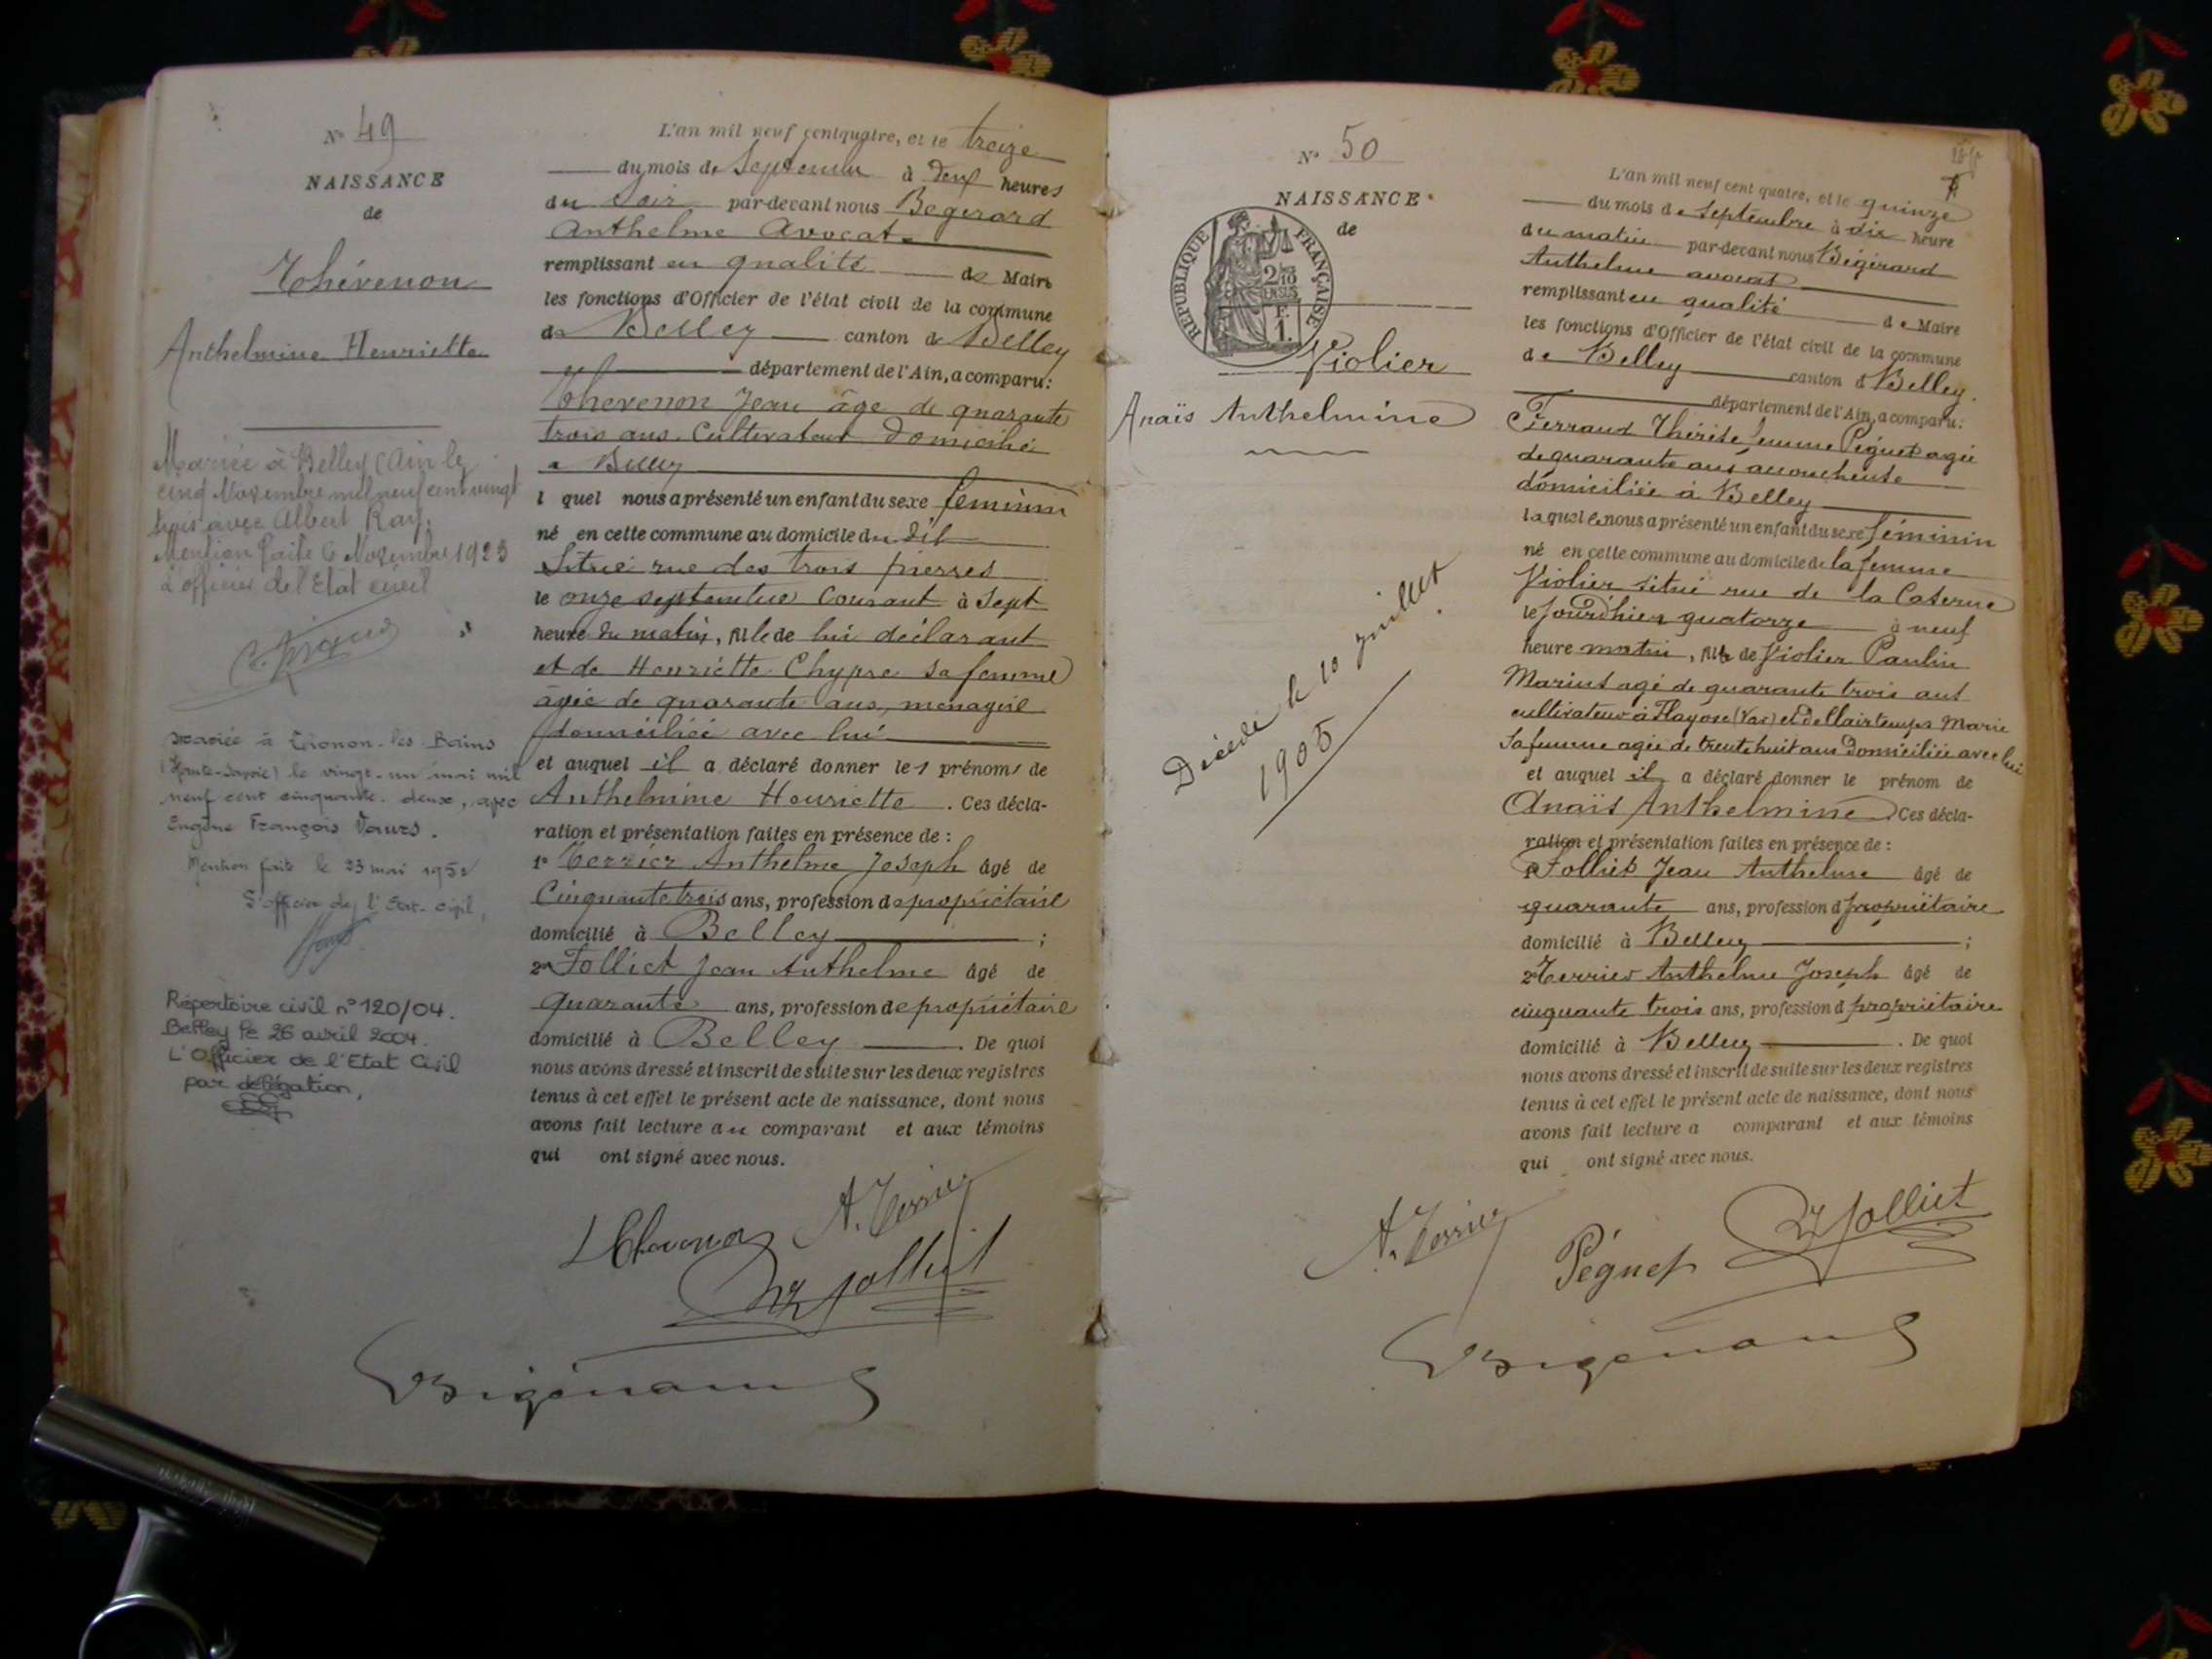 Nº 49
NAISSANCE
de
Thévenon
Anthelmine Henriette
Mariée à Belley (Ain le
cinq Novembre mil neuf cent vingt
trois avec Albert Ray.
Mention faite 6 Novembre 1923
à officier de l'Etat civil
mariée à Thonon-les-Bains
(Haute-Savoie) le vingt-un mai mil
neuf cent cinquante-deux, avec
Engène François Vaurs.
Mention faite le 23 mai 1952
l'officier de l'Etat-civil,
Répertoire civil n° 120/04.
Belley le 26 avril 2004.
L'Officier de l'Etat Civil
par délégation,
L'an mil neuf cent quatre, et le treize
du mois de Septembre à deux heures
du soir par-devant nous Begerard
Anthelme Avocat
remplissant en qualité de Maire
les fonctions d'Officier de l'état civil de la commune
de Belley canton de Belley
département de l'Ain, a comparu:
Thevenon Jean âgé de quarante
trois ans. Cultivateur domicilié
a Belley
l quel nous a présenté un enfant du sexe feminin
né en cette commune au domicile du dit
Situé rue des trois pierres
le onze septembre Courant à Sept
heure du matin, fille de lui déclarant
et de Henriette Chypre sa femme
âgée de quarante ans, menagère
domiciliée avec lui
et auquel il a déclaré donner les prénoms de
Anthelmine Henriette. Ces décla-
ration et présentation faites en présence de:
1º Terrier Anthelme Joseph âgé de
Cinquante trois ans, profession de propriétaire
domicilié à Belley;
2º Folliet Jean Anthelme âgé de
quarante ans, profession de propriétaire
domicilié à Belley. De quoi
nous avons dressé et inscrit de suite sur les deux registres
tenus à cet effet le présent acte de naissance, dont nous
avons fait lecture au comparant et aux témoins
qui ont signé avec nous.
Thevenon A. Terrier
Folliet
Bigerard
Nº 50
NAISSANCE
de
REPUBLIQUE FRANÇAISE
2/10 EN SUS
F.
1.
Violier
Anaïs Anthelmine
Décédé le 10 juillet
1905
L'an mil neuf cent quatre, et le quinze
du mois de Septembre à dix heure
du matin par-devant nous Bigérard
Anthelme avocat
remplissant en qualité de Maire
les fonctions d'Officier de l'état civil de la commune
de Belley canton d Belley.
département de l'Ain, a comparu:
Ferrand Thérèse femme Péguet agée
de quarante ans accoucheuse
domiciliée à Belley
laquelle nous a présenté un enfant du sexe féminin
né en cette commune au domicile de la femme
Violier situé rue de la Caserne
le jourd'hier quatorze à neuf
heure matin, fille de Violier Paulin
Marius agé de quarante trois ans
cultivateur à Flayosc (Var) et de Clairtemps Marie
Sa femme agée de trente huit ans domiciliée avec lui
et auquel il a déclaré donner le prénom de
Anaïs Anthelmine Ces décla-
ration et présentation faites en présence de:
1º Folliet Jean Anthelme âgé de
quarante ans, profession d propriétaire
domicilié à Belley;
2º Terrier Anthelme Joseph âgé de
cinquante trois ans, profession d propriétaire
domicilié à Belley. De quoi
nous avons dressé et inscrit de suite sur les deux registres
tenus à cet effet le présent acte de naissance, dont nous
avons fait lecture a comparant et aux témoins
qui ont signé avec nous.
A. Terrier Péguet Folliet
Bigerard